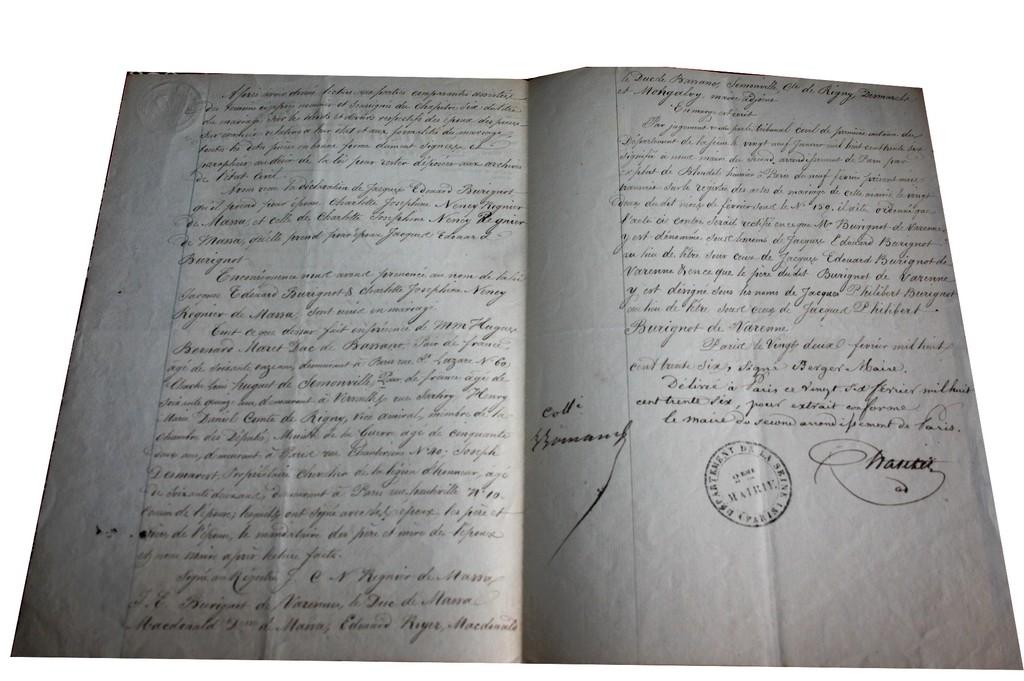 Après avoir donné lecture aux parties comparantes
du Chapitre Six du titre
du mariage sur les droits et devoirs respectifs des époux des pièces
à leur état et aux formalités du mariage
toutes les dites pièces en bonne forme dument signées et
paraphées au désir de la loi pour rester déposées aux archives
de l'état civil.
Nous reçu la déclaration de Jacques Edouard Burignot
qu'il prend pour épouse Charlotte Joséphine Nency Regnier
de Massa, et celle de Charlotte Joséphine Nency Regnier
de Massa, qu'elle prend pour époux Jacques Edouard
Burignot
En conséquence nous avons prononcé au nom de la loi
Jacques Edouard Burignot & Charlotte Joséphine Nency
Regnier de Massa, sont unis en mariage.
Tout ce que dessus fait en présence de MM Hugues
Bernard Maret Duc de Bassano, Pair de france
agé de soixante onze ans, demeurant à Paris rue St Lazare No 60,
Charles Louis Huguet de Semonville, Pair de france agé de
soixante quinze ans, demeurant à Versailles, rue Satory Henry
Marie Daniel Comte de Rigny, vice amiral, membre de la
chambre des Députés, Ministre de la Guerre agé de cinquante
deux ans, demeurant à Paris rue No 40; Joseph
Desmarest, Propriétaire Chevalier de la légion d'honneur, agé
de soixante demeurant à Paris rue hauteville No 10
cousin de l'épouse; lesquels ont signé avec les époux les père et
mère de l'épouse, le mandataire des père et mère de l'époux
et nous maire après lecture faite.
Signé au Registre J. C N Regnier de Massa,
J. E. Burignot de Varennes, le Duc de Massa
Macdonald Dsse de Massa, Edouard Roger, Macdonald
le Duc de Bassano, Semonville, Cte de Rigny, Desmarest
et Mongalvy, maire adjoint
En marge est écrit
Par jugement rendu par le tribunal civil de première instance du
Département de la Seine le vingt neuf Janvier mil huit cent trente six
signifié à nous maire du second arrondissement de Paris par
exploit de Blondel huissier à Paris du neuf février présent mois
transcrit sur le registre des actes de mariage de cette mairie le vingt
deux du dit mois de février sous le No 150, il a été ordonné que
l'acte ci contre serait rectifié en ce que Mr Burignot de Varenne
y est dénommé sous les noms de Jacques Edouard Burignot
au lieu de l'être sous ceux de Jacques Edouard Burignot de
Varenne & en ce que le père du dit Burignot de Varenne
y est désigné sous les noms de Jacques Philibert Burignot
au lieu de l'être sous ceux de Jacques Philibert
Burignot de Varenne
Paris le vingt deux février mil huit
cent trente six, signé Berger Maire.
Délivré à Paris ce vingt six février mil huit
cent trente six, pour extrait conforme
le maire du second arrondissement de Paris.
Collé
DÉPARTEMENT DE LA SEINE (PARIS)
2EME
MAIRIE